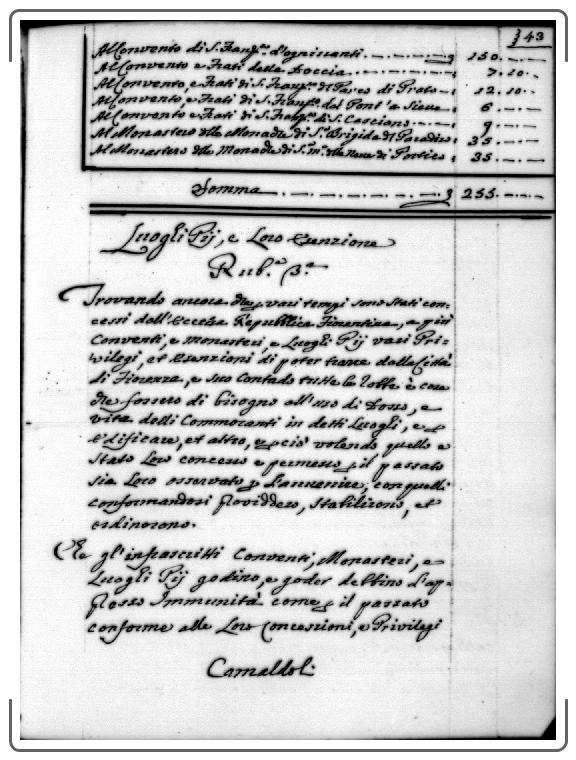 343
Al Convento di S. Franc.º d'ognissanti 3 150.
Al Convento e Frati della Doccia 7.10.
Al Convento, e Frati di S. Franc.º di Prato 12.10.
Al Convento, e Frati di S. Franc.º del Pont' a Sieve 6
Al Convento e Frati di S. Franc.º di S. Casciano 9
Al Monastero delle Monache di S.ta Brigida di Paradiso 35
Al Monastero delle Monache di S.ª M.ª della Neve di Portico 35.
Somma 3 255.
Luogli Pij, e Loro Esenzione
Rub.ª 3.ª
Trovando ancora che p vari tempi sono stati con:
cessi dall'Eccelsa Repubblica Fiorentina, a più
Conventi, e monasteri, e Luogli Pij vari Pri-
vilegi, et Esenzioni di poter trarre dalla Città
di Firenze, e suo Contado tutte le Robbe e cose
che fossero di bisogno all'uso di Dosso, e
vita delli Commoranti in detti Luogli, e p
Edificare, et altro, e p ciò volendo quello e
stato Loro concesso e permesso p il passato
sia Loro osservato p l'avvenire, con quelli
conformandosi Providdero, Stabilirono, et
ordinorono.
Che gl'infrascritti Conventi, Monasteri, e
Luogli Pij godino, e goder debbino d'ap-
presso Immunità come p il passato
conforme alle Loro Concessioni, e Privilegi
Camaldoli